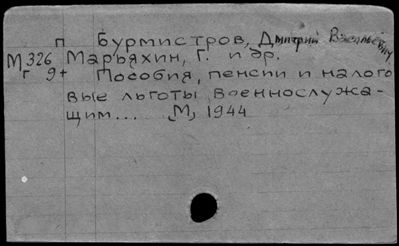 п Бурмистров, Дмитрий
М326 Марьяхин, Г. и др.
г 9+ Пособия, пенсии и налого
вые льготы военнослужа-
щим... М, 1944